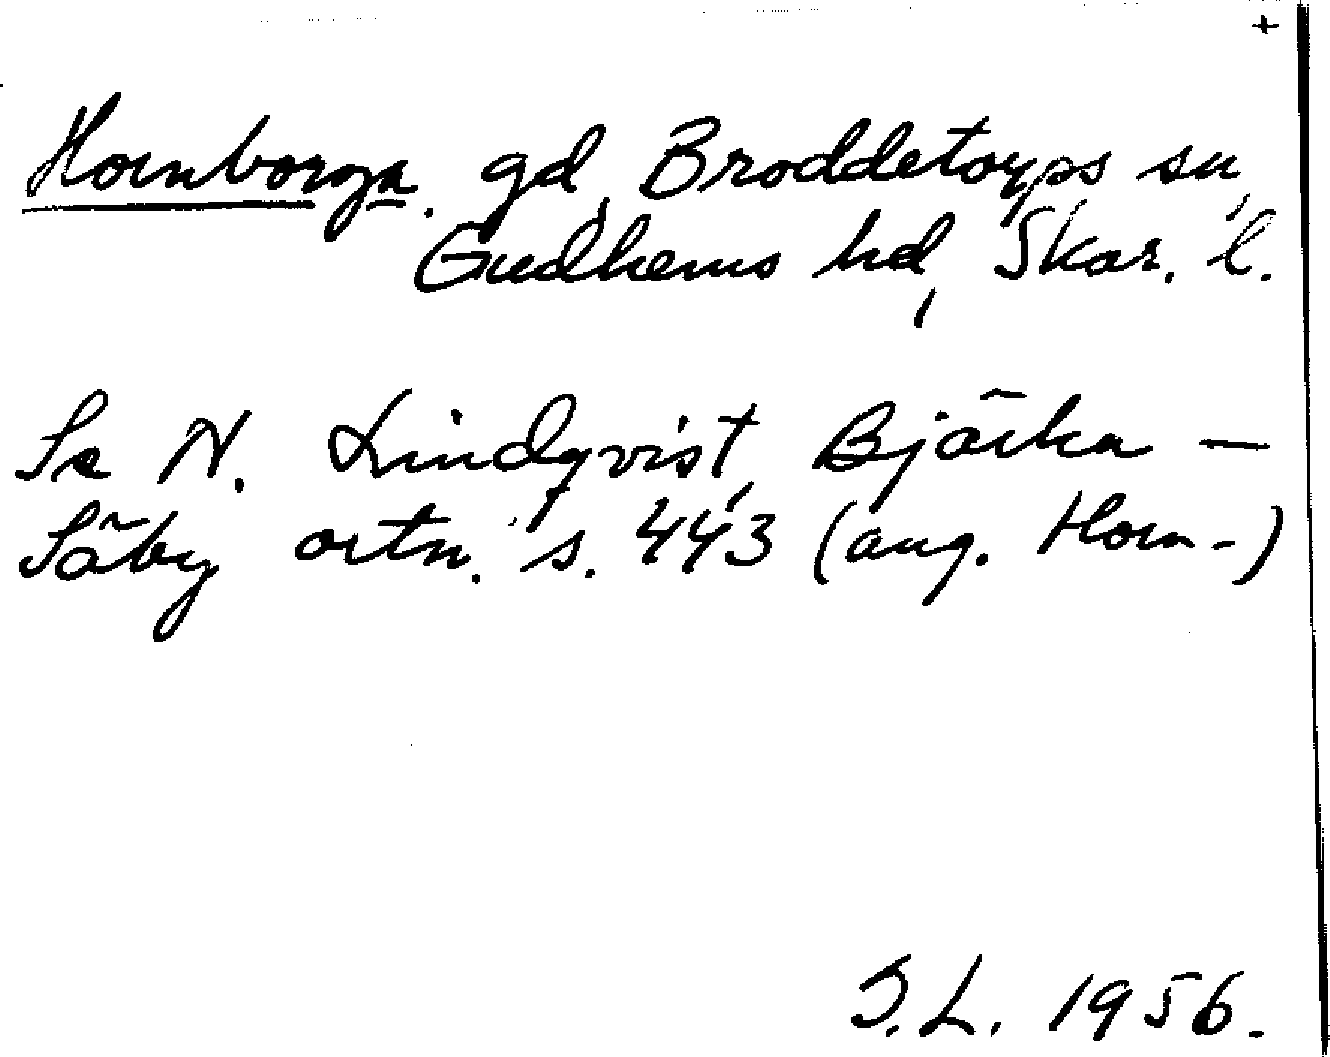 +
Hornborga. gd, Broddetorps sn,
Gudhems hd, Skar. l.
Se N. Lindqvist, Bjärka –
Säby ortn. s. 443 (ang. Horn-)
I.L. 1956.